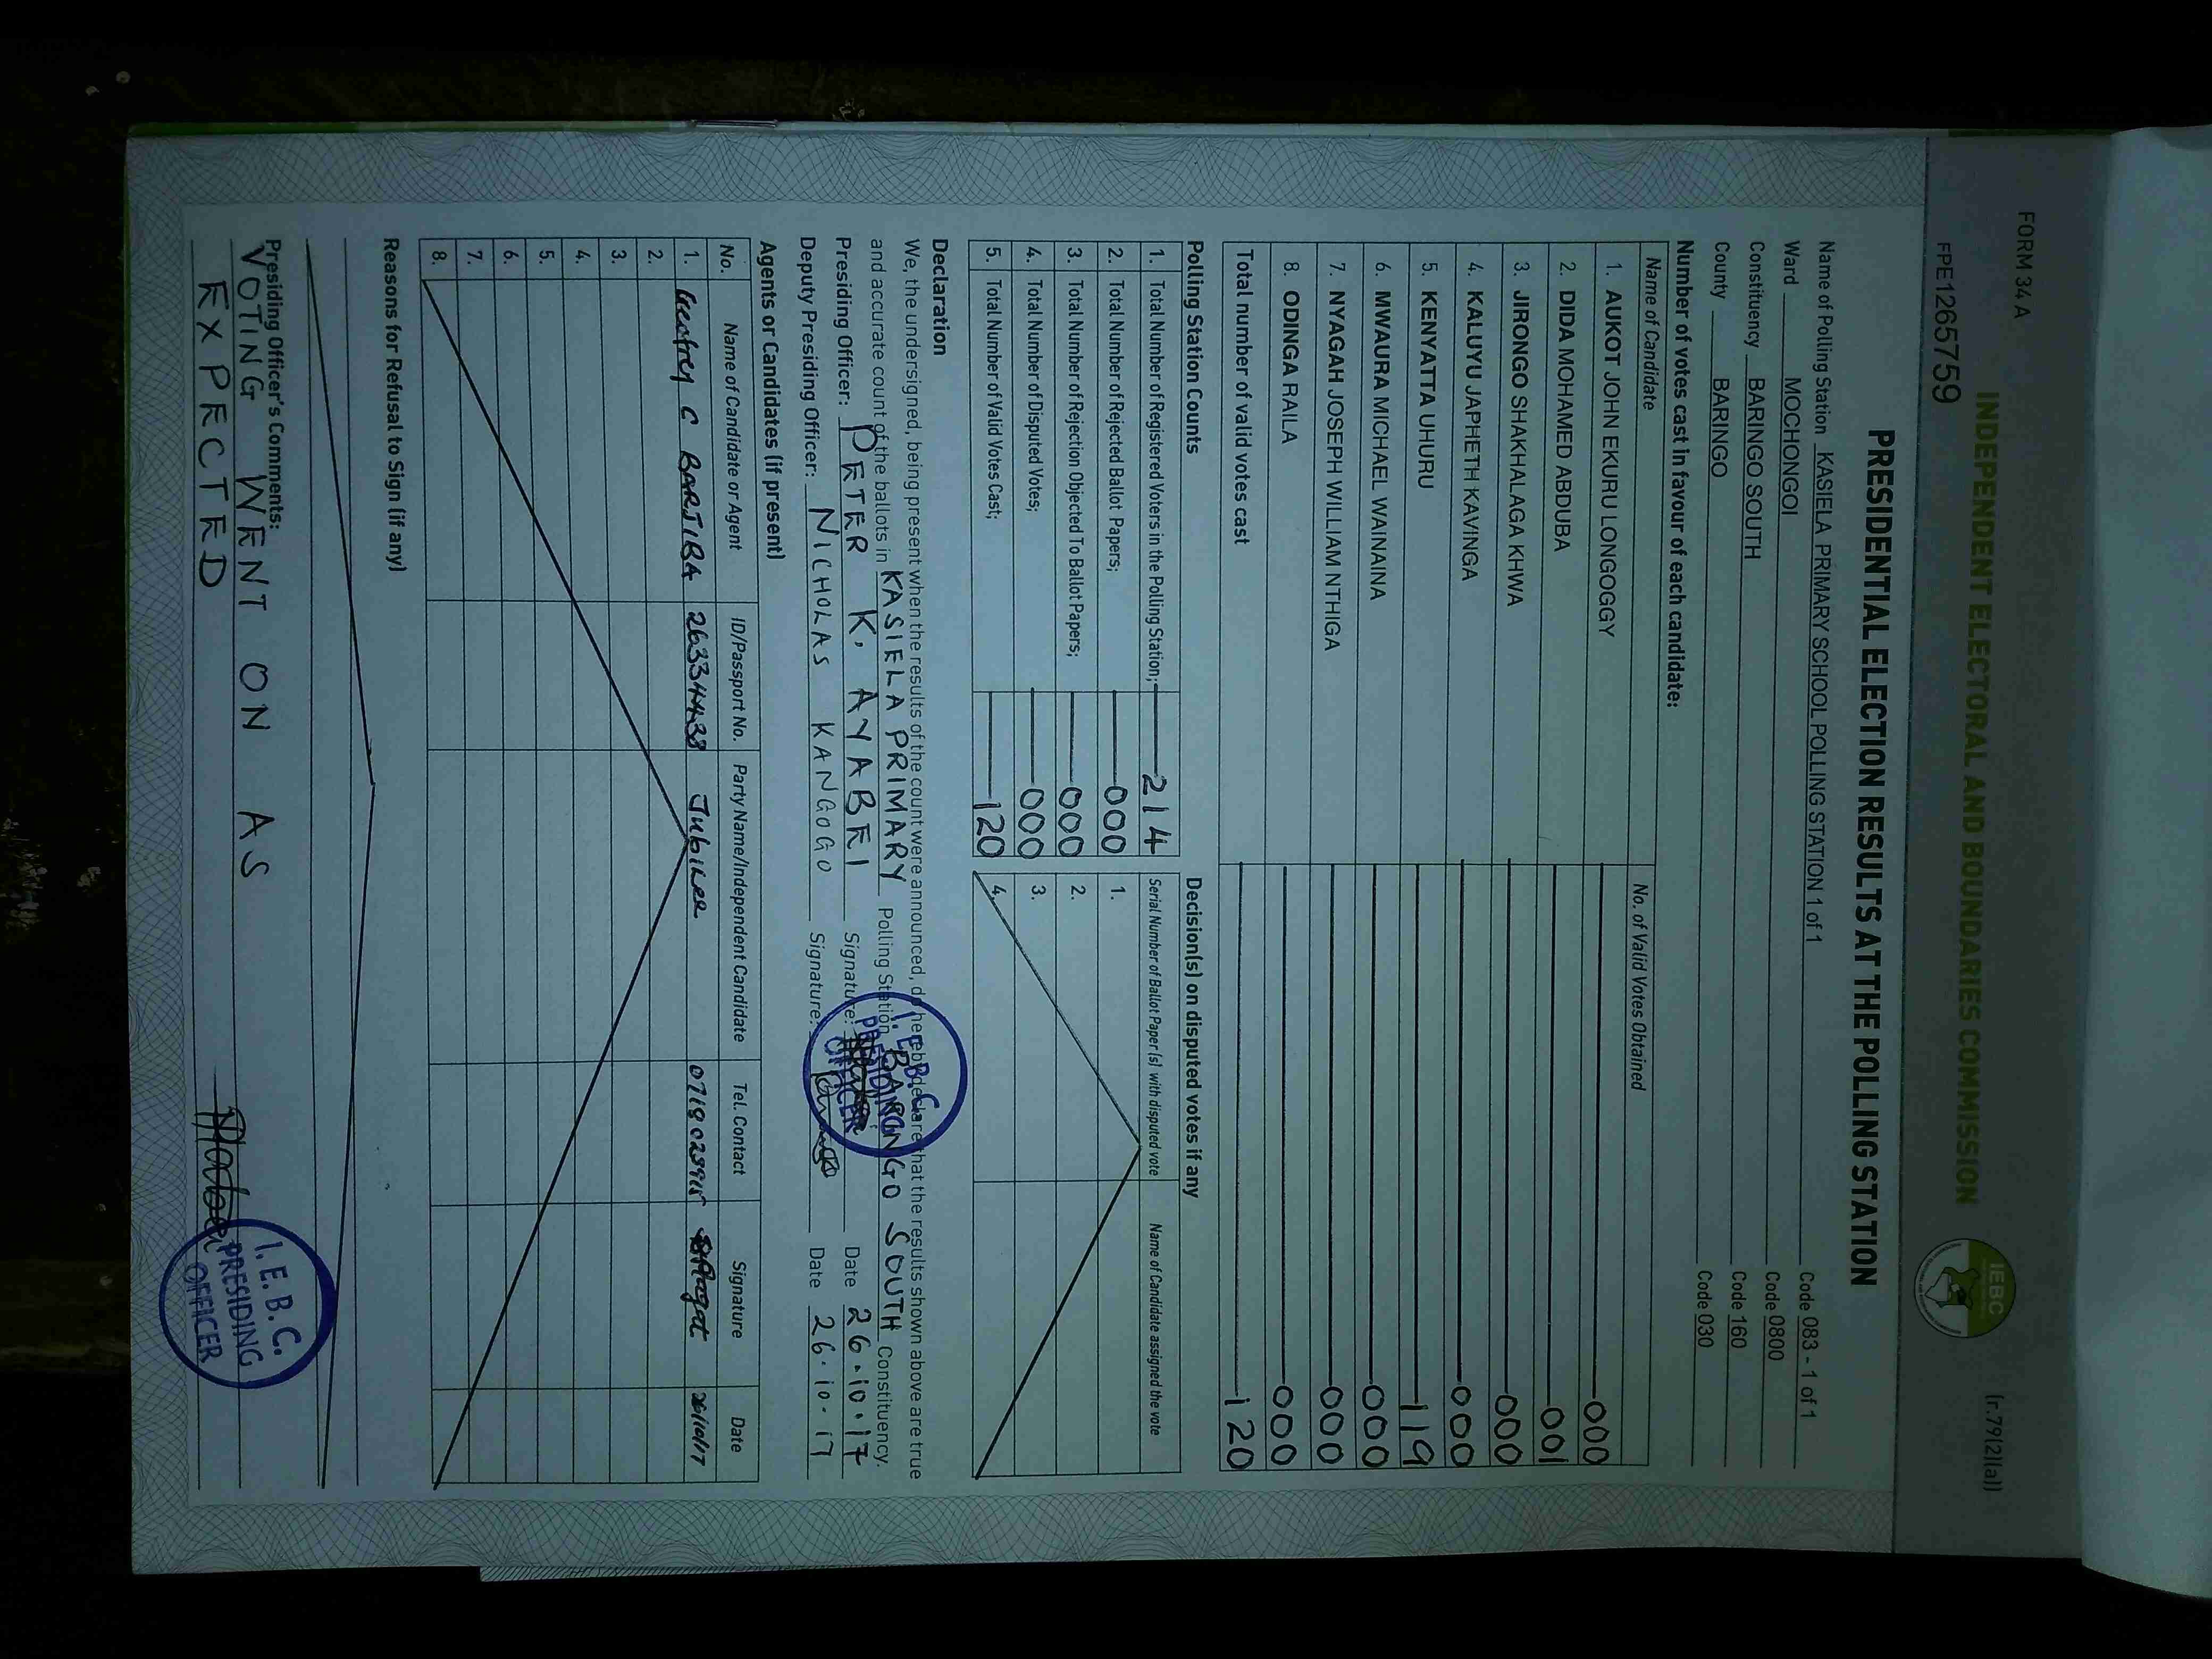 FORM 34 A
(r.79(2)(a))
INDEPENDENT ELECTORAL AND BOUNDARIES COMMISSION
IEBC
FPE1265759
PRESIDENTIAL ELECTION RESULTS AT THE POLLING STATION
Name of Polling Station KASIELA PRIMARY SCHOOL POLLING STATION 1 of 1 Code 083 - 1 of 1
Ward MOCHONGOI Code 0800
Constituency BARINGO SOUTH Code 160
County BARINGO Code 030
Number of votes cast in favour of each candidate:
Name of Candidate No. of Valid Votes Obtained
1. AUKOT JOHN EKURU LONGOGGY 000
2. DIDA MOHAMED ABDUBA 001
3. JIRONGO SHAKHALAGA KHWA 000
4. KALUYU JAPHETH KAVINGA 000
5. KENYATTA UHURU 119
6. MWAURA MICHAEL WAINAINA 000
7. NYAGAH JOSEPH WILLIAM NTHIGA 000
8. ODINGA RAILA 000
Total number of valid votes cast 120
Polling Station Counts
1. Total Number of Registered Voters in the Polling Station; 214
2. Total Number of Rejected Ballot Papers; 000
3. Total Number of Rejection Objected To Ballot Papers; 000
4. Total Number of Disputed Votes; 000
5. Total Number of Valid Votes Cast; 120
Decision(s) on disputed votes if any
Serial Number of Ballot Paper (s) with disputed vote Name of Candidate assigned the vote
1.
2.
3.
4.
Declaration
We, the undersigned, being present when the results of the count were announced, do hereby declare that the results shown above are true
and accurate count of the ballots in KASIELA PRIMARY Polling Station BARINGO SOUTH Constituency.
Presiding Officer: PETER K. AYABEI Signature: Date 26.10.17
Deputy Presiding Officer: NICHOLAS KANGOGO Signature: Date 26.10.17
I. E. B. C.
PRESIDING
OFFICER
Agents or Candidates (if present)
No. Name of Candidate or Agent ID/Passport No. Party Name/Independent Candidate Tel. Contact Signature Date
1. C BARTIBA Jubilee 26/10/17
2.
3.
4.
5.
6.
7.
8.
Reasons for Refusal to Sign (if any)
Presiding Officer's Comments:
VOTING WENT ON AS
EXPECTED
I. E. B. C.
PRESIDING
OFFICER